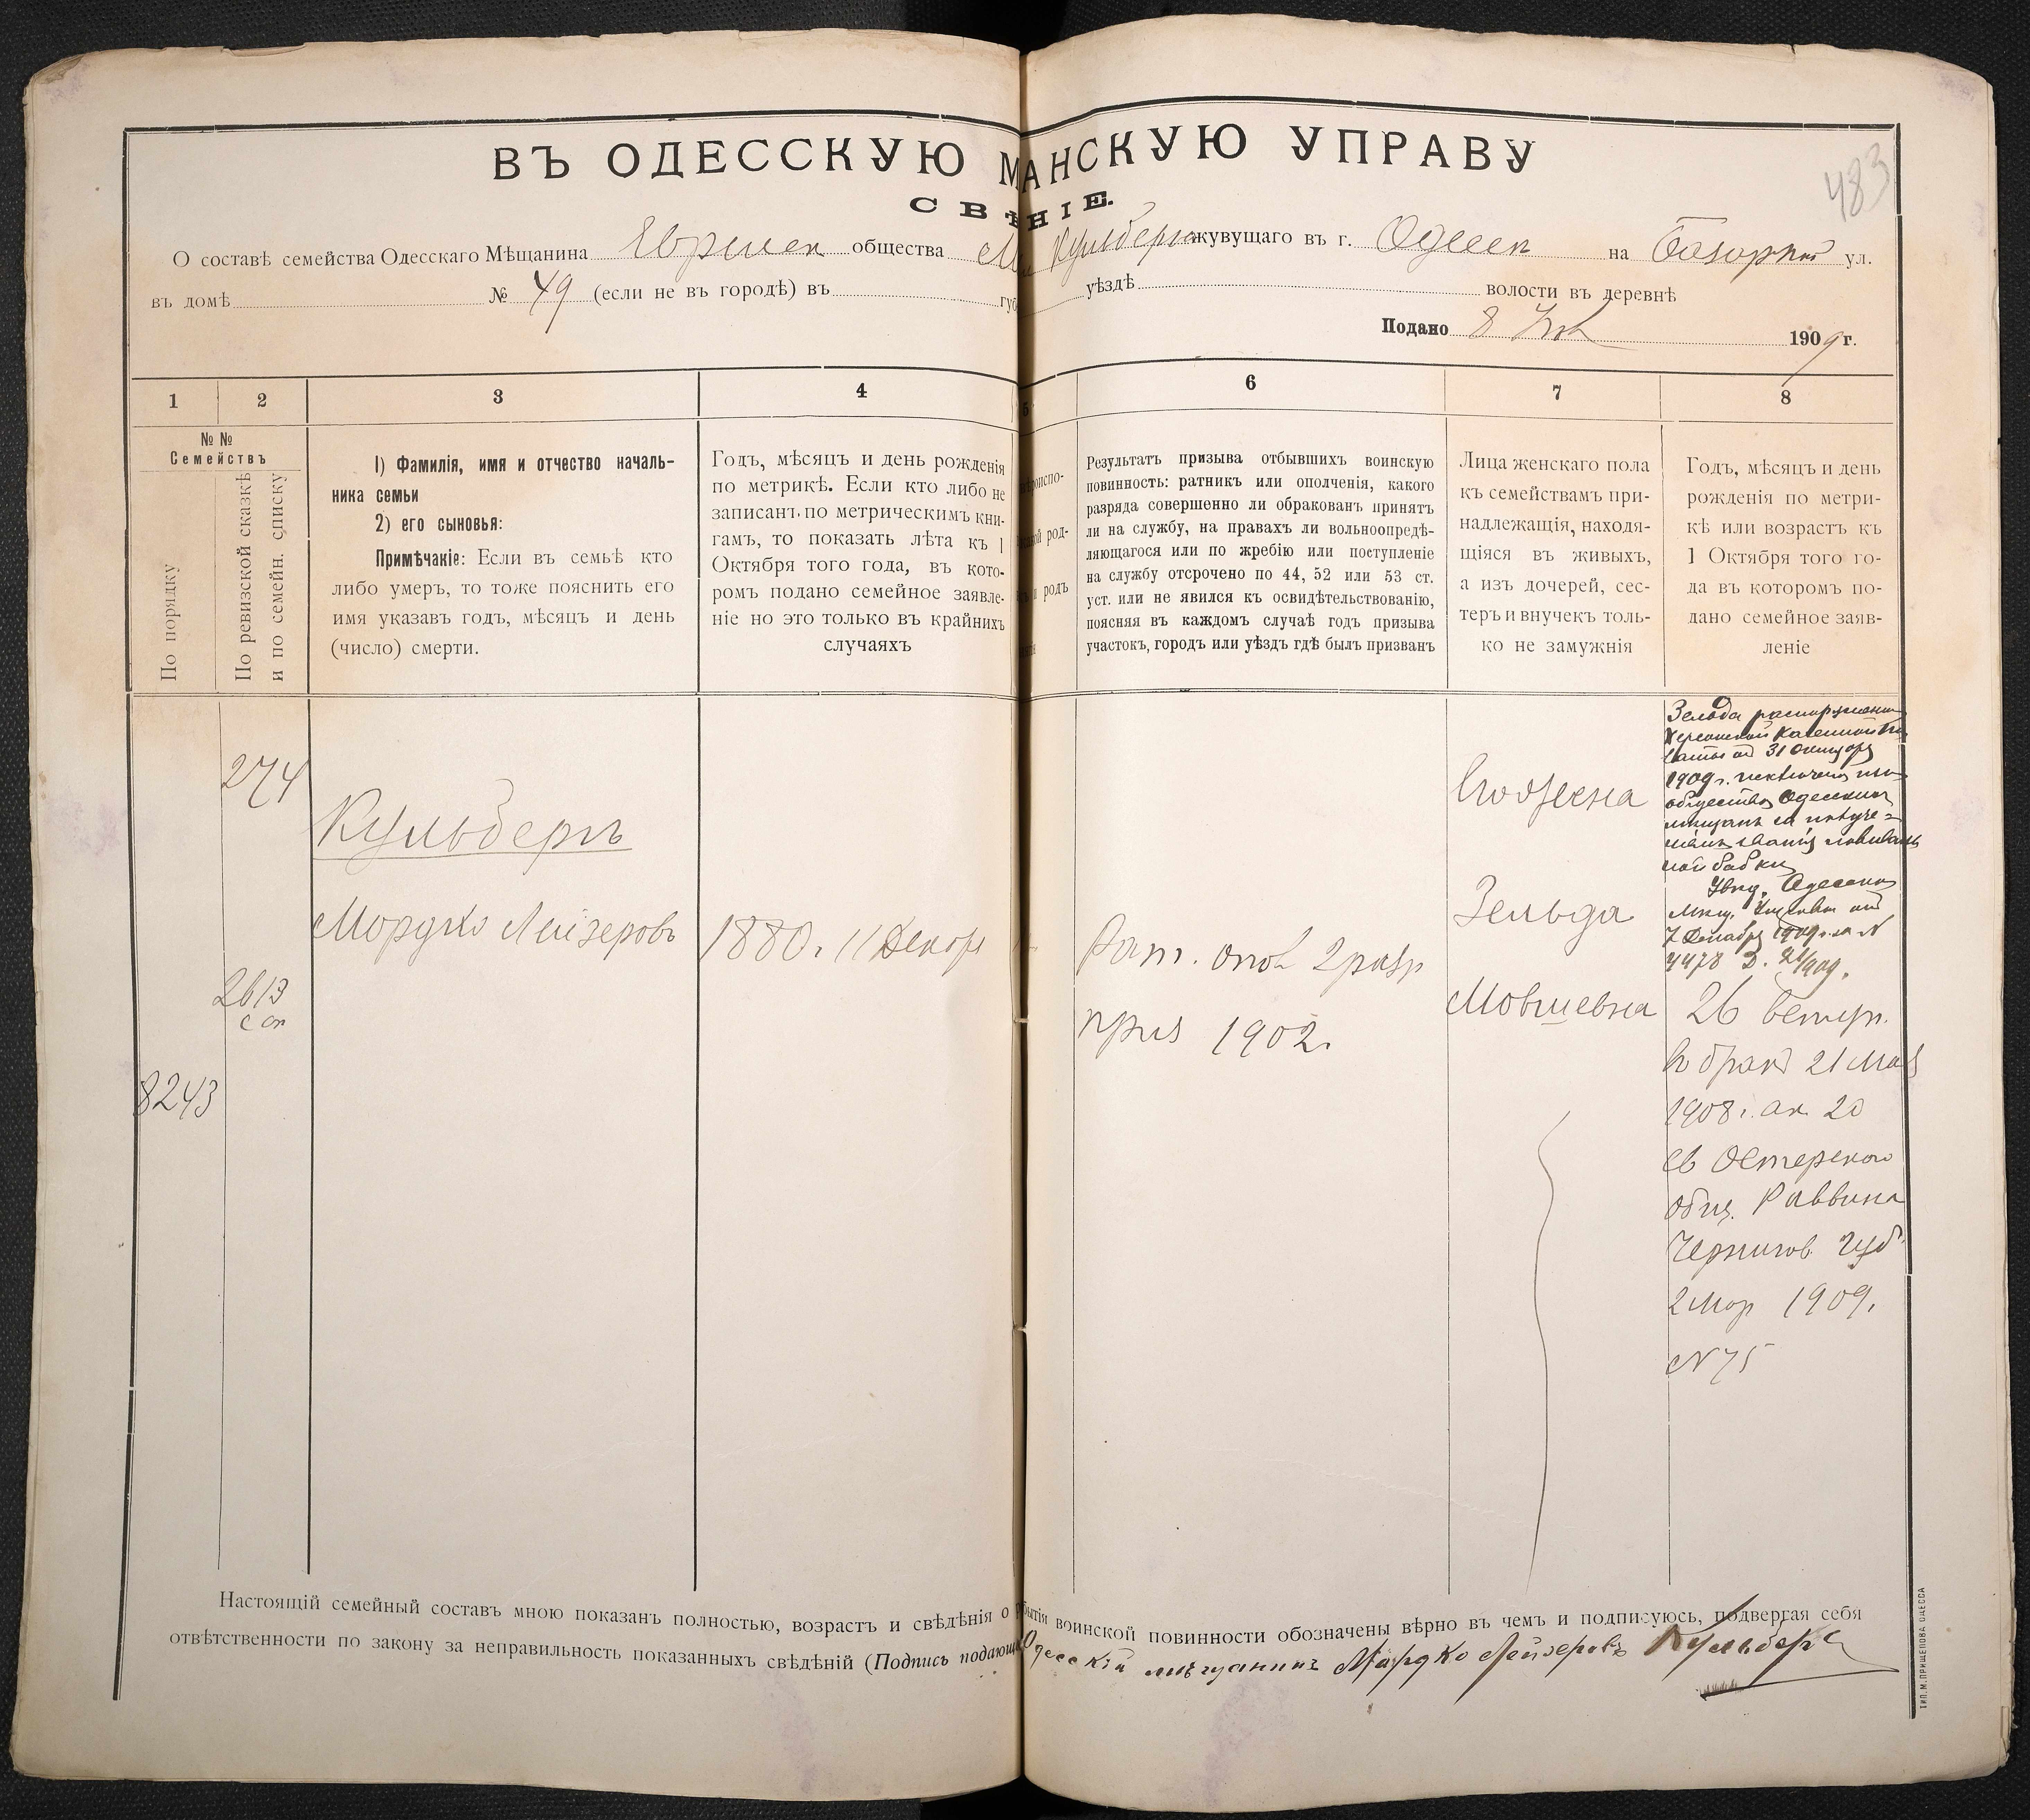 483
ВЪ ОДЕССКУЮ М АНСКУЮ УПРАВУ
СВѢ НІЕ.
О составѣ семейства Одесскаго Мѣщанина общества Кульберга жувущаго въ г. Одессѣ на Базарной ул.
въ домѣ № 49 (если не въ городѣ) въ губ уѣздѣ волости въ деревнѣ
Подано 8 1909 г.
1 2 3 4 5 6 7 8
№ №
Семействъ
По порядку
По ревизской сказкѣ
и по семейн. списку
1) Фамилія, имя и отчество началь-
ника семьи
2) его сыновья:
Примѣчакіе: Если въ семьѣ кто
либо умеръ, то тоже пояснить его
имя указавъ годъ, мѣсяцъ и день
(число) смерти.
Годъ, мѣсяцъ и день рожденія
по метрикѣ. Если кто либо не
записанъ по метрическимъ кни-
гамъ, то показать лѣта къ 1
Октября того года, въ кото-
ромъ подано семейное заявле-
ніе но это только въ крайнихъ
случаяхъ
роиспо-
ой род-
и родъ
Результатъ призыва отбывшихъ воинскую
повинность: ратникъ или ополченія, какого
разряда совершенно ли обракованъ принятъ
ли на службу, на правахъ ли вольноопредѣ-
ляющагося или по жребію или поступленіе
на службу отсрочено по 44, 52 или 53 ст.
уст. или не явился къ освидѣтельствованію,
поясняя въ каждомъ случаѣ годъ призыва
участокъ, городъ или уѣздъ гдѣ былъ призванъ
Лица женскаго пола
къ семействамъ при-
надлежащія, находя-
щіяся въ живыхъ,
а изъ дочерей, сес-
теръ и внучекъ толь-
ко не замужнія
Годъ, мѣсяцъ и день
рожденія по метри-
кѣ или возрастъ къ
1 Октября того го-
да въ котором по-
дано семейное заяв-
леніе
274
2613
с сп
8243
Кульбергъ
Мордко Лейзеровъ
1880 г. 11 Декабр
Рат. опол 2 разр
приз 1902 г.
Его жена
Зельда
Мовшевна
Зельда распоряженіемъ
Херсонской Казенной Па
латы отъ 31 Октября
1909 г. исключена изъ
общества Одесскихъ
мѣщанъ за получе-
ніемъ званія повиваль
ной бабки
Увѣд. Одесской
Мѣщ. Управы отъ
7 Декабря 1909 г. за №
7478
26
въ бракѣ 21 Мая
1908 г. ак. 20
св Остерскаго
общ. Раввина
Чернигов. губ
2 Мар 1909.
№ 75
Настоящій семейный составъ мною показанъ полностью, возрастъ и свѣдѣнія о бытія воинской повинности обозначены вѣрно въ чемъ и подписуюсь, подвергая себя
отвѣтственности по закону за неправильность показанныхъ свѣдѣній (Подпись подающ Одесскій мѣщанинъ Мордко Лейзеровъ Кульбергъ
ТИП. М. ПРИЩЕПОВА ОДЕССА